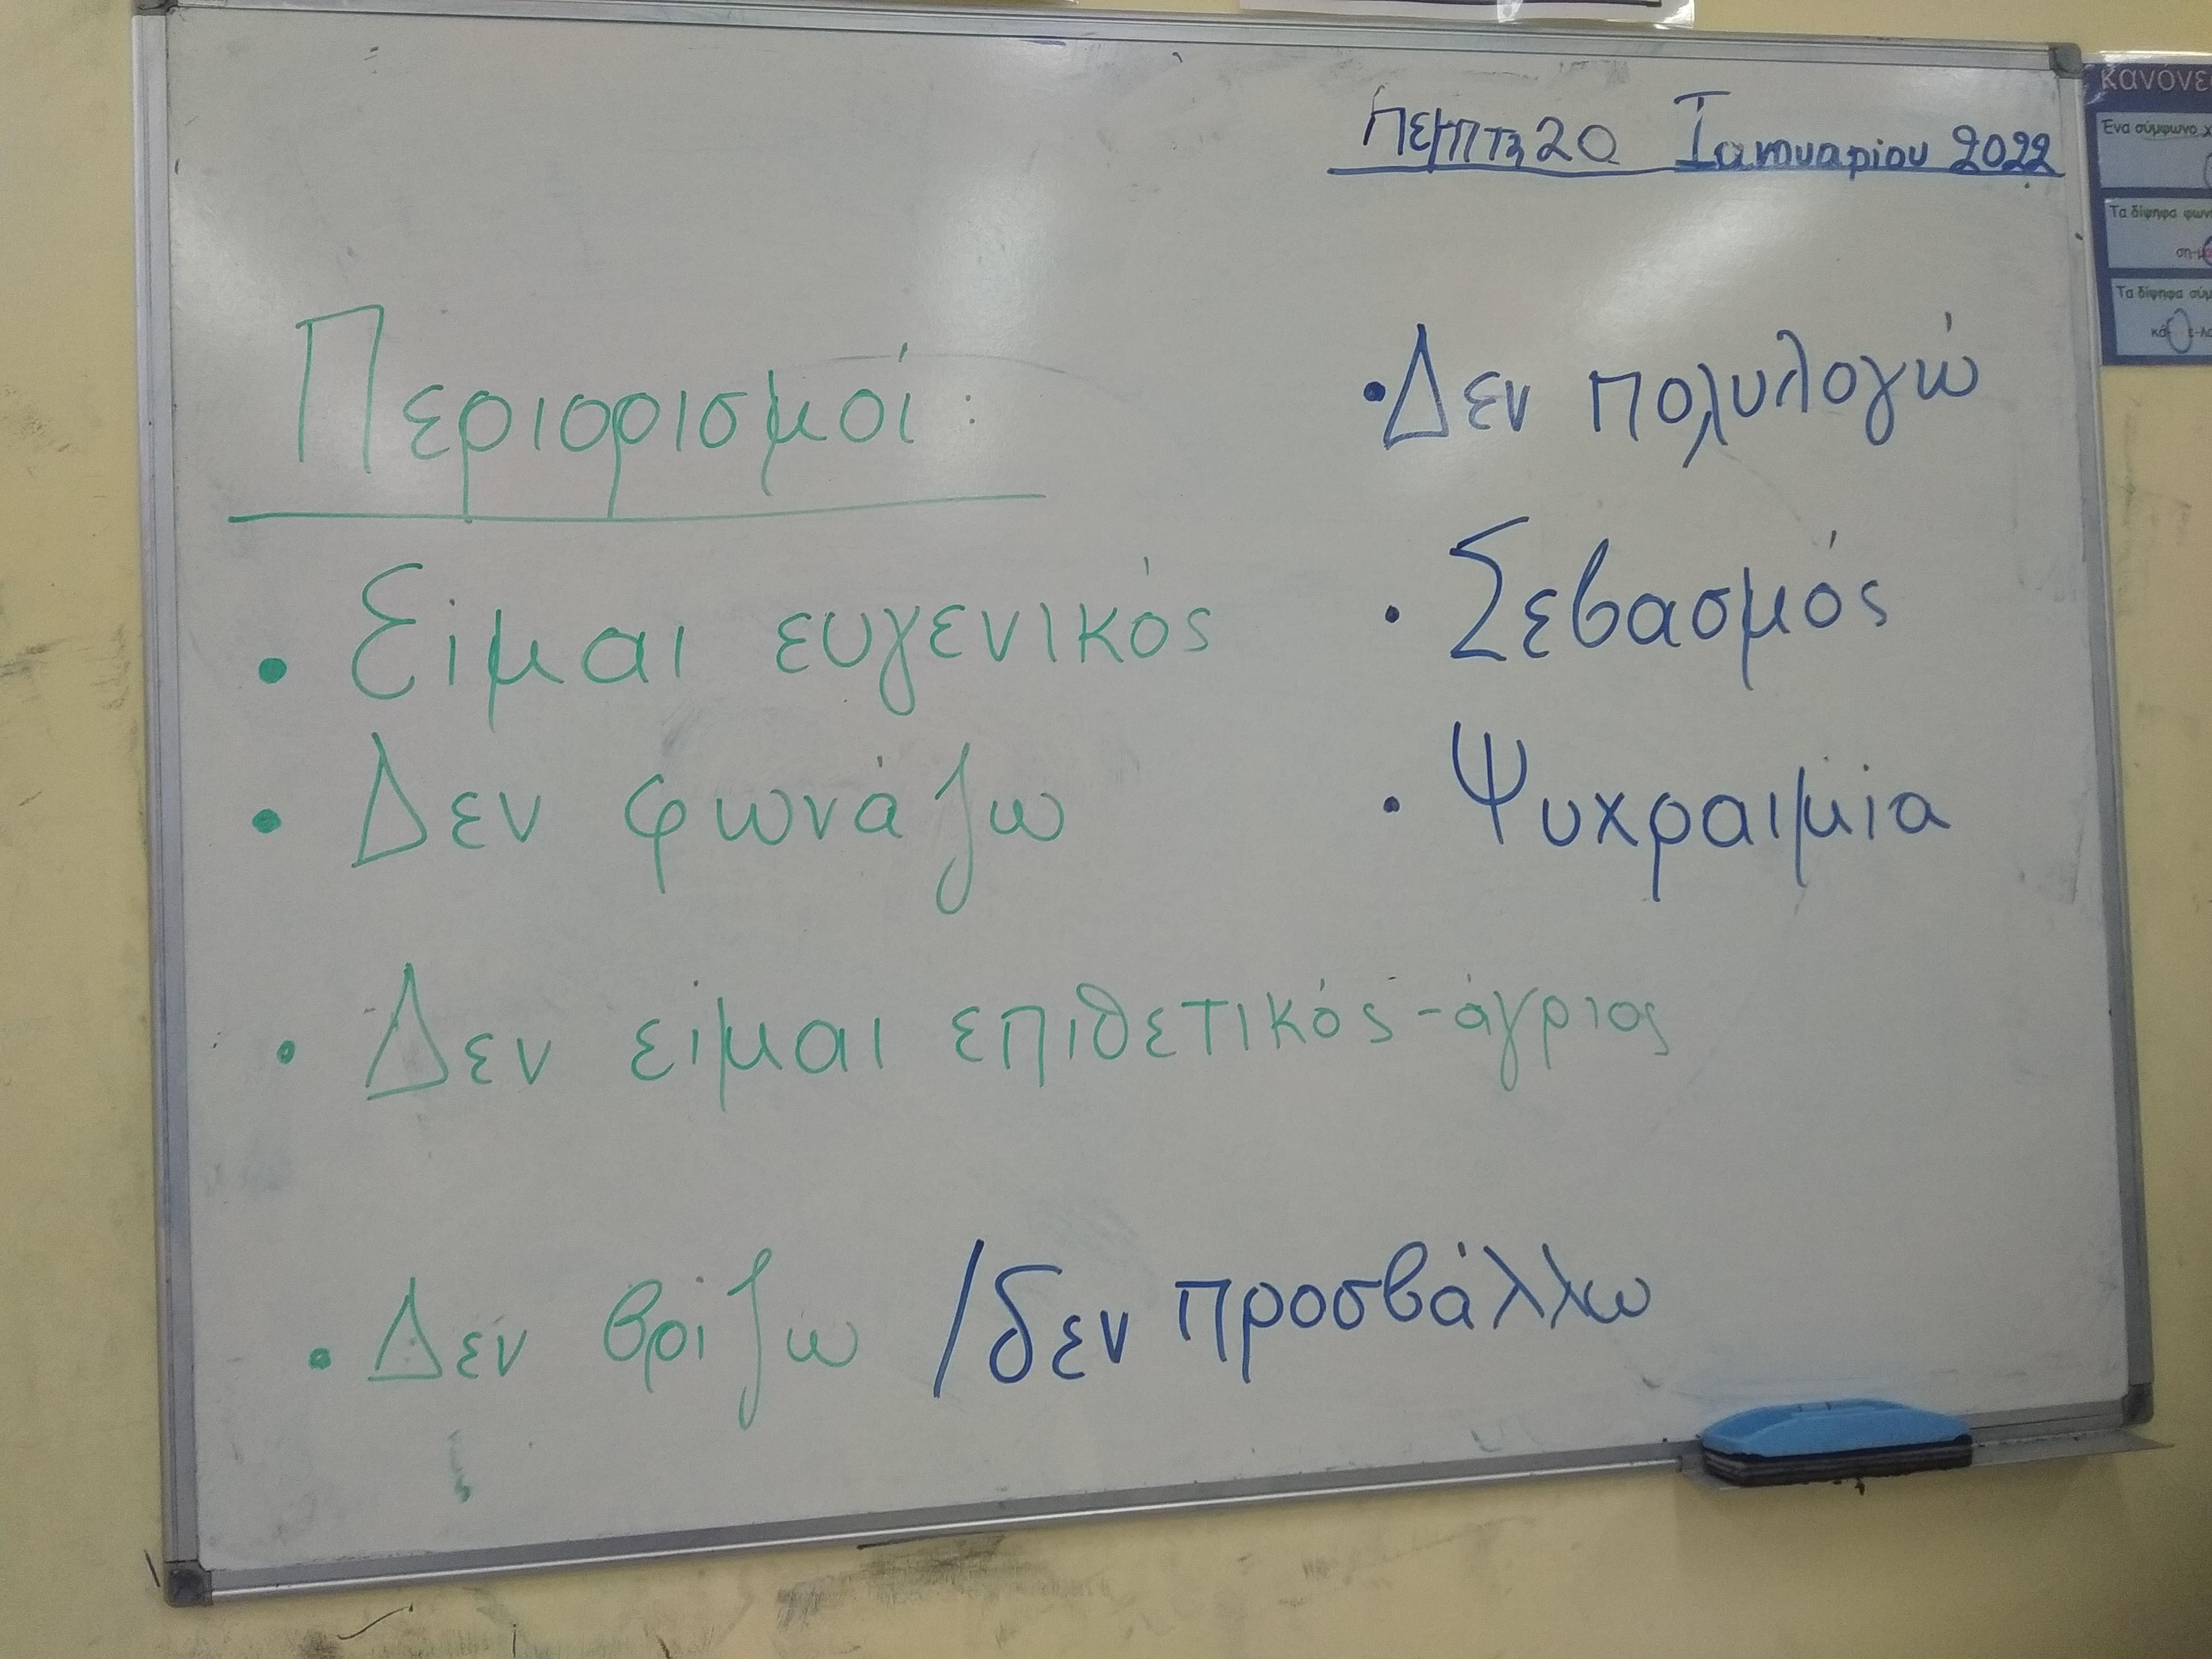 Πεμπτη 20 Ιανουαρίου 2022
Περιορισμοί:
• Είμαι ευγενικός
• Δεν φωνάζω
• Δεν είμαι επιθετικός - άγριος
• Δεν βρίζω / δεν προσβάλλω
• Δεν πολυλογώ
• Σεβασμός
• Ψυχραιμία
κανόνε
Ένα σύμφωνο
Τα δίψηφα φων
ση-μ
Τα δίψηφα σύμ